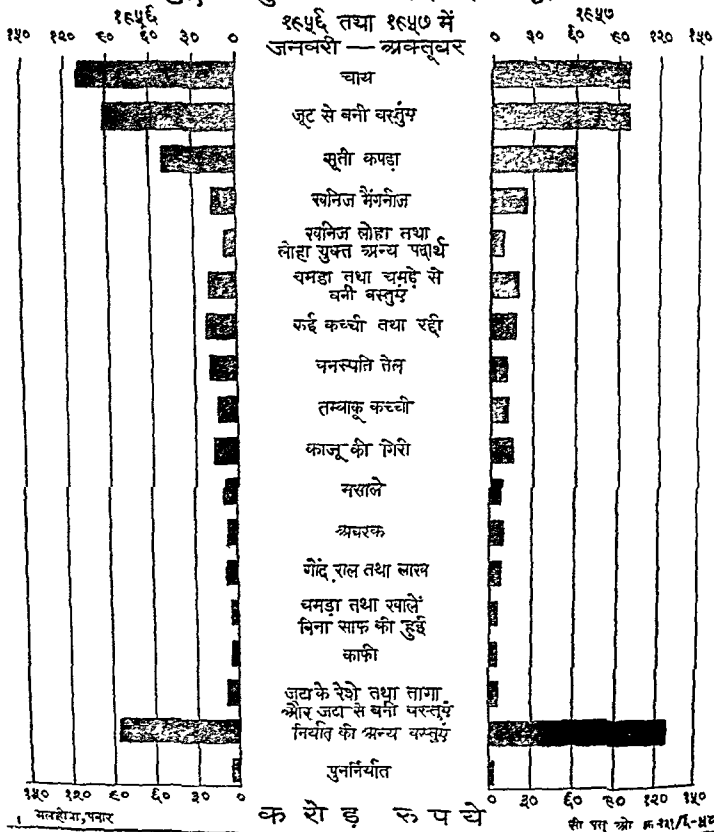 १९५६
१९५६ तथा १९५७ में
१९५७
१५० १२० ९० ६० ३० ०
० ३० ६० ९० १२० १५०
जनवरी — अक्तूबर
चाय
जूट से बनी वस्तुएं
सूती कपड़ा
खनिज मैंगनीज
खनिज लोहा तथा
लोहा युक्त अन्य पदार्थ
चमड़ा तथा चमड़े से
बनी वस्तुएं
रूई कच्ची तथा रद्दी
वनस्पति तेल
तम्बाकू कच्ची
काजू की गिरी
मसाले
अबरक
गोंद, राल तथा लाख
चमड़ा तथा खालें
बिना साफ की हुई
काफी
जटा के रेशे तथा तागा
और जटा से बनी वस्तुएं
निर्यात की अन्य वस्तुएं
पुनर्निर्यात
१५० १२० ९० ६० ३० ०
० ३० ६० ९० १२० १५०
करोड़ रुपये